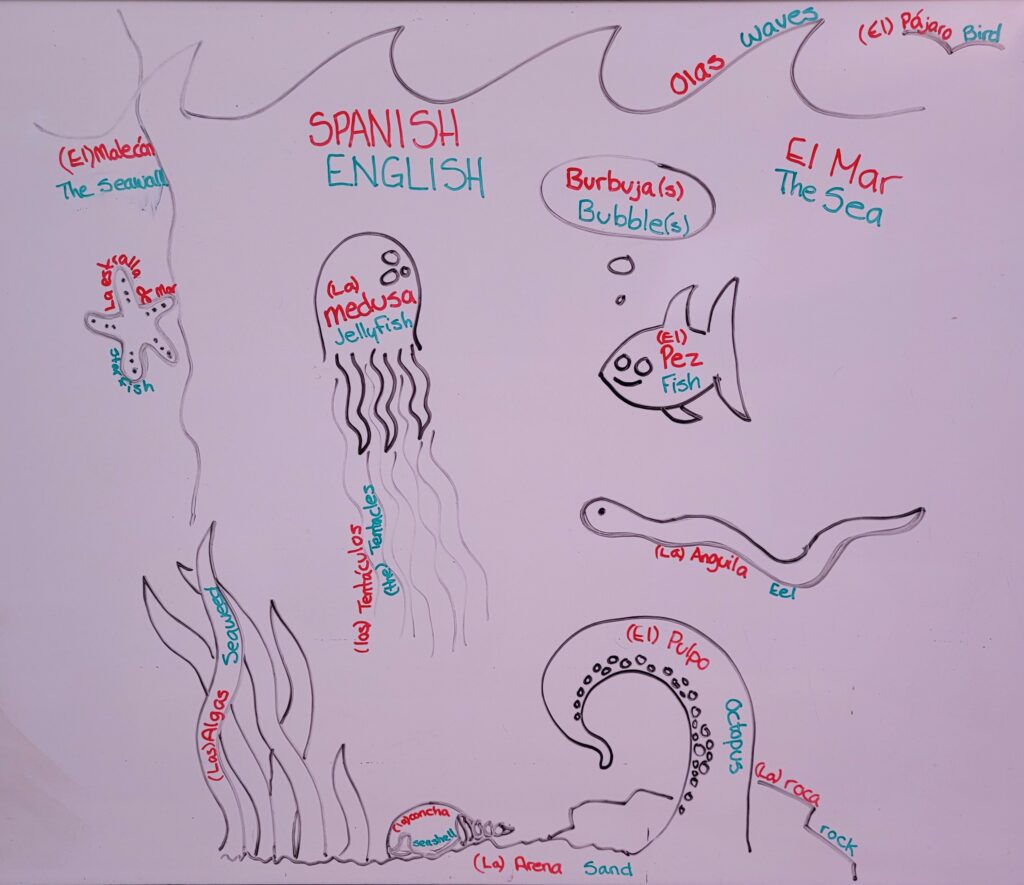 (El) Pájaro Bird
Olas waves
SPANISH
ENGLISH
(El) Malecón
The Seawall
El Mar
The Sea
Burbuja(s)
Bubble(s)
La estrella
de Mar
fish
(La)
medusa
Jellyfish
(El)
Pez
Fish
(los) Tentáculos
(the) Tentacles
(La) Anguila
Eel
(Las) Algas Seaweed
(El) Pulpo
Octopus
(La) roca
rock
(la) concha
seashell
(La) Arena Sand